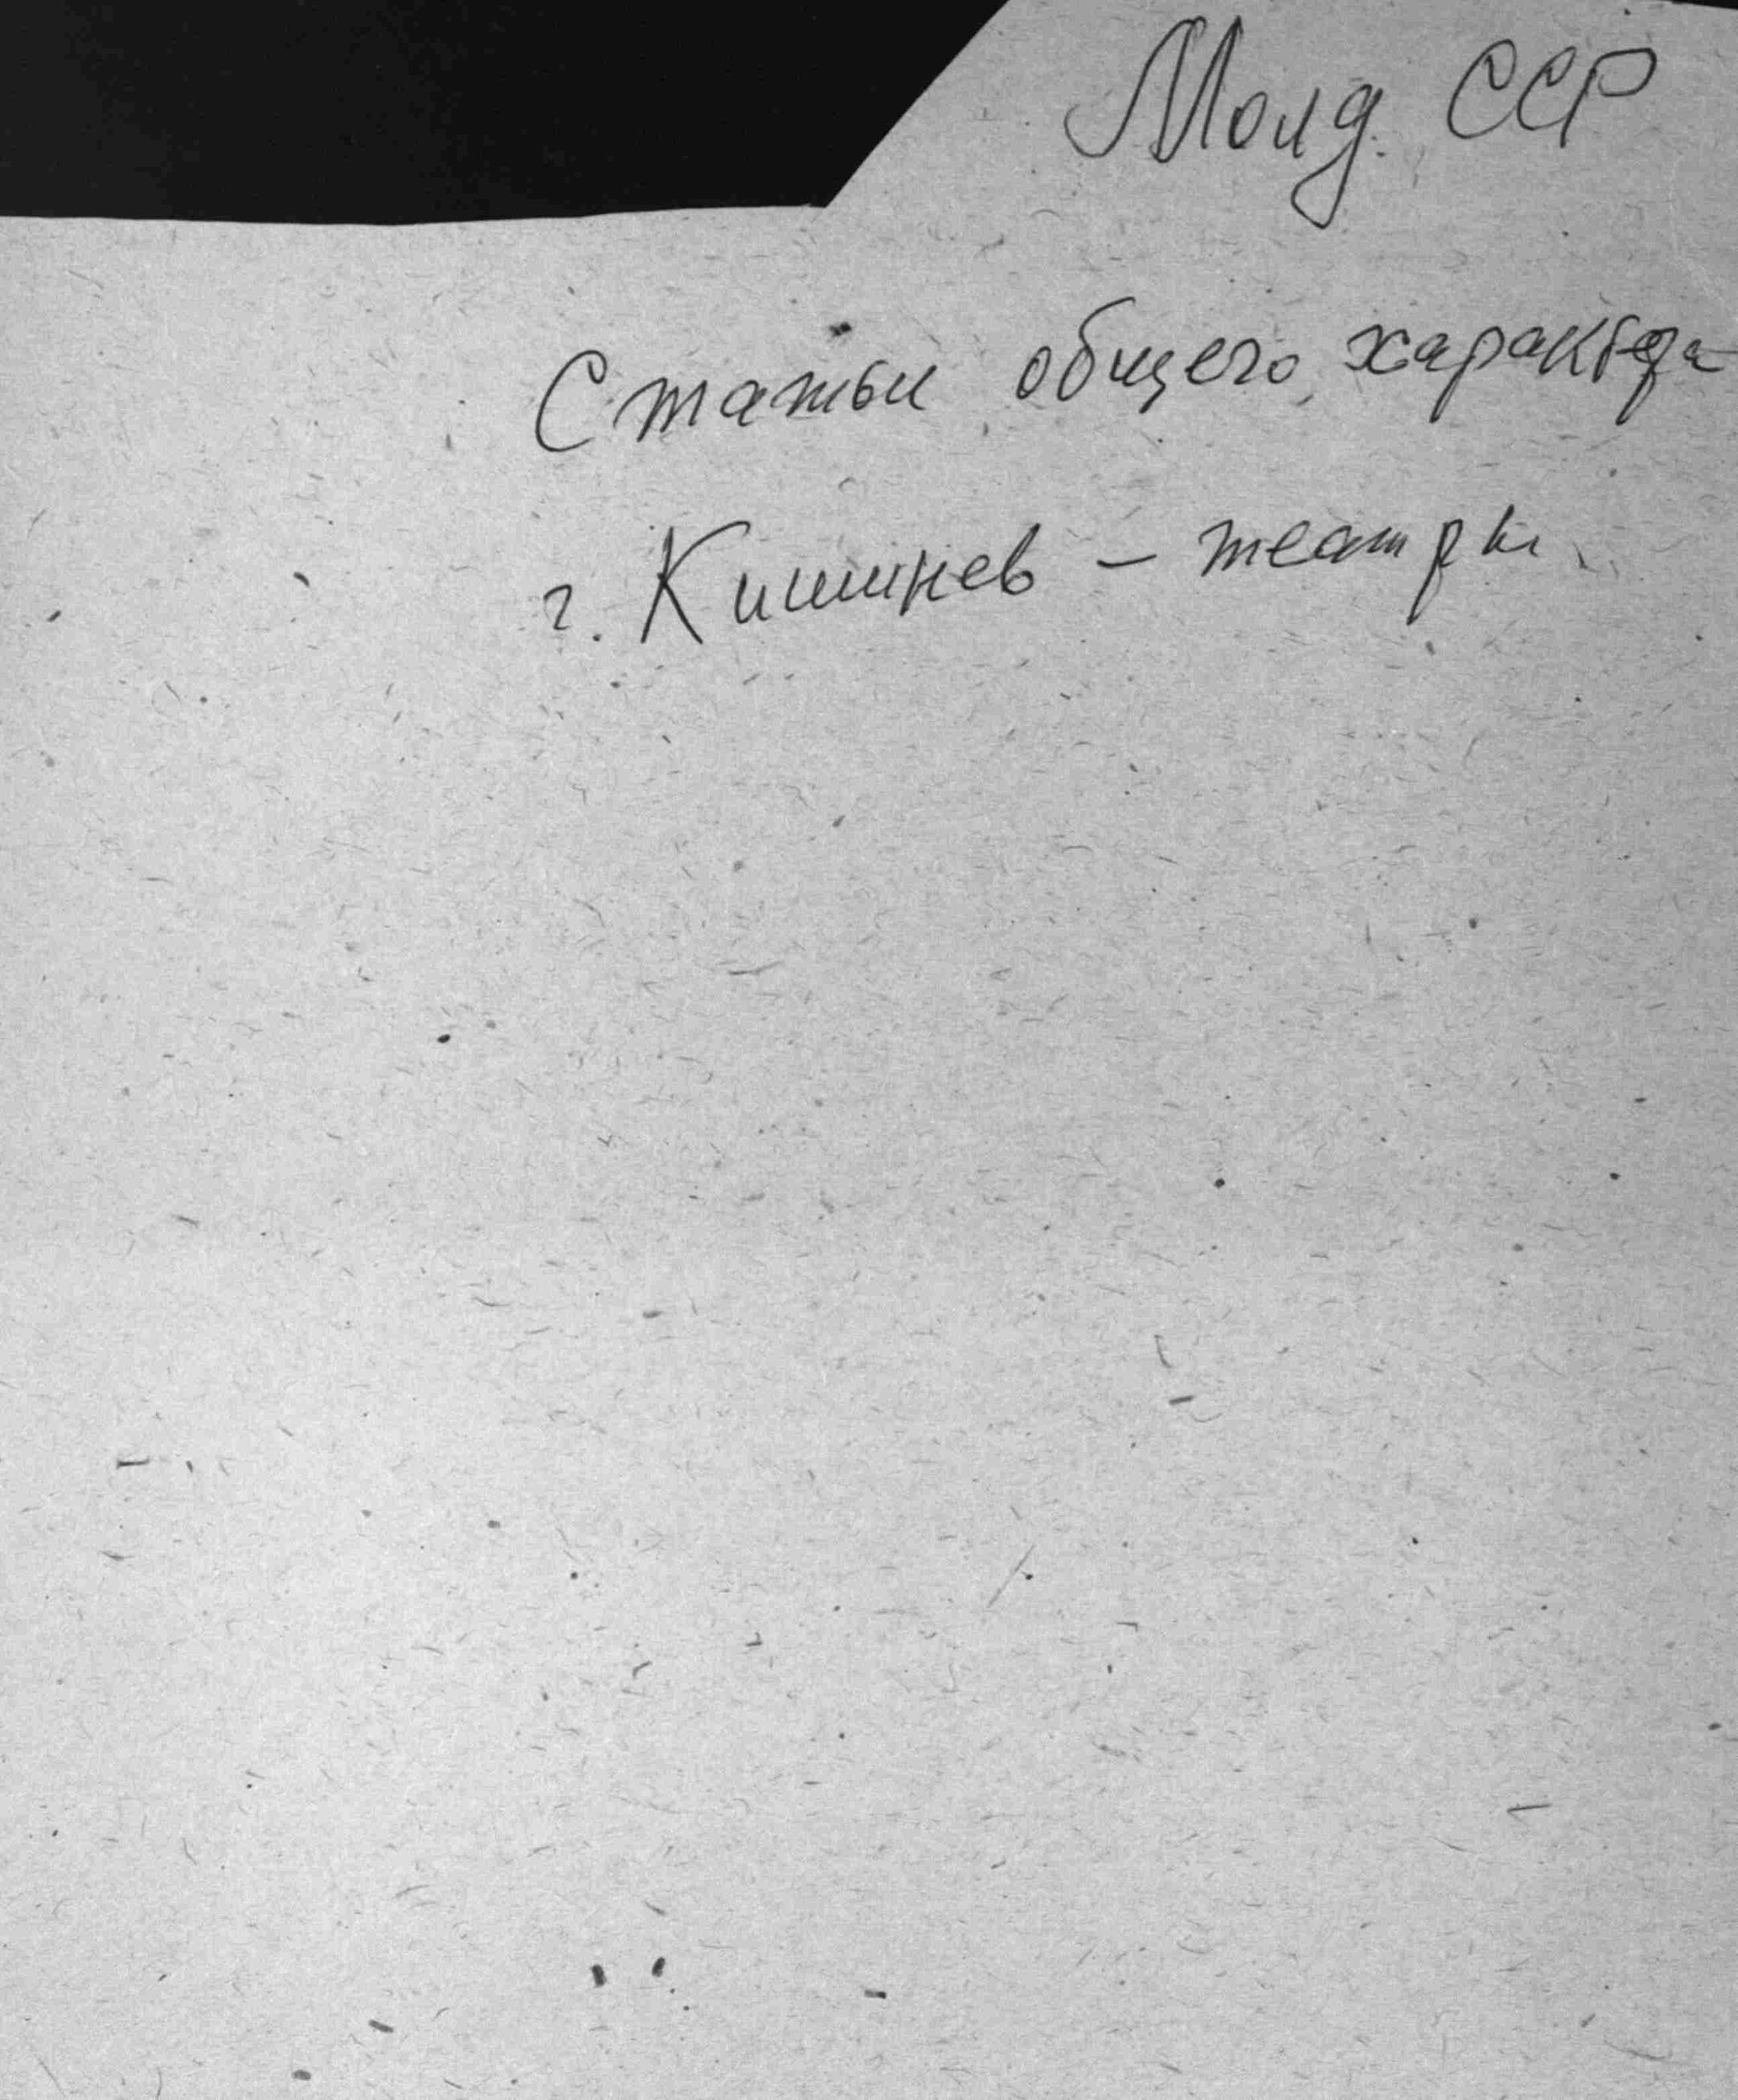 Молд. ССР
Статьи общего характера
г. Кишинев – театры